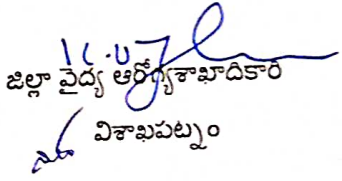 జిల్లా వైద్య ఆరోగ్యశాఖాదికారి
విశాఖపట్నం